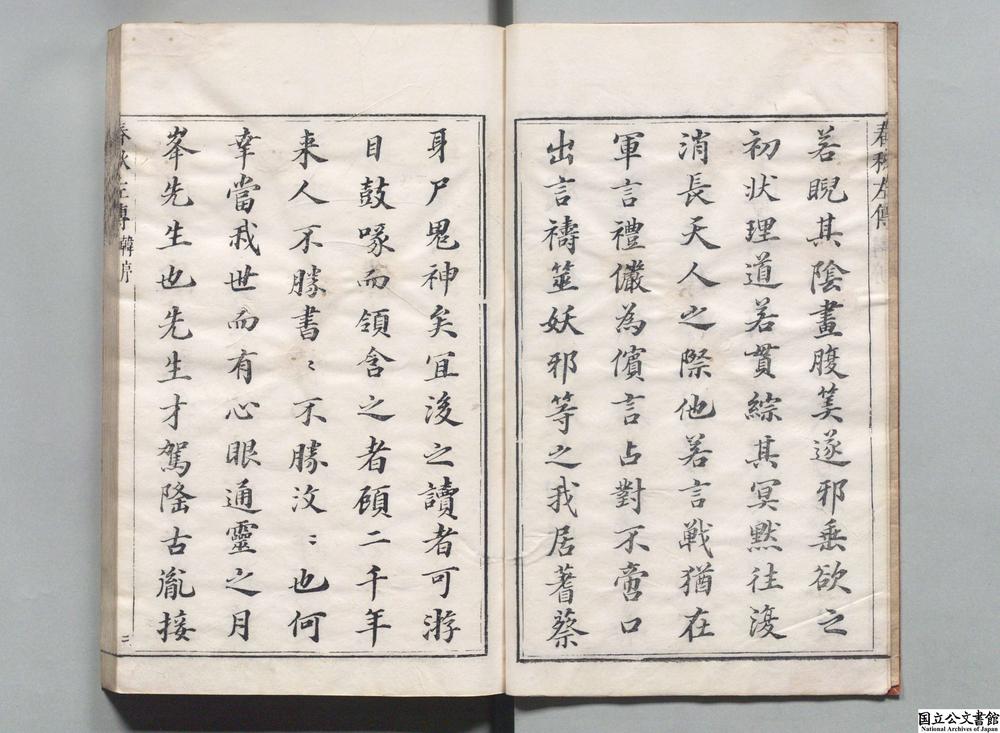 若睨其陰畫腹筭遂邪垂欲之
初狀理道若貫綜其冥黙往復
消長天人之際他若言戰猶在
軍言禮儼為儐言占對不啻口
出言禱筮妖邪等之我居蓍蔡
身尸鬼神矣宜後之讀者可游
目鼓喙而領含之者碩二千年
来人不勝書〻不勝汶〻也何
幸當我世而有心眼通靈之月
峯先生也先生才駕隆古胤接
春秋左傳
春秋左傳 韓序
二
国立公文書館
National Archives of Japan